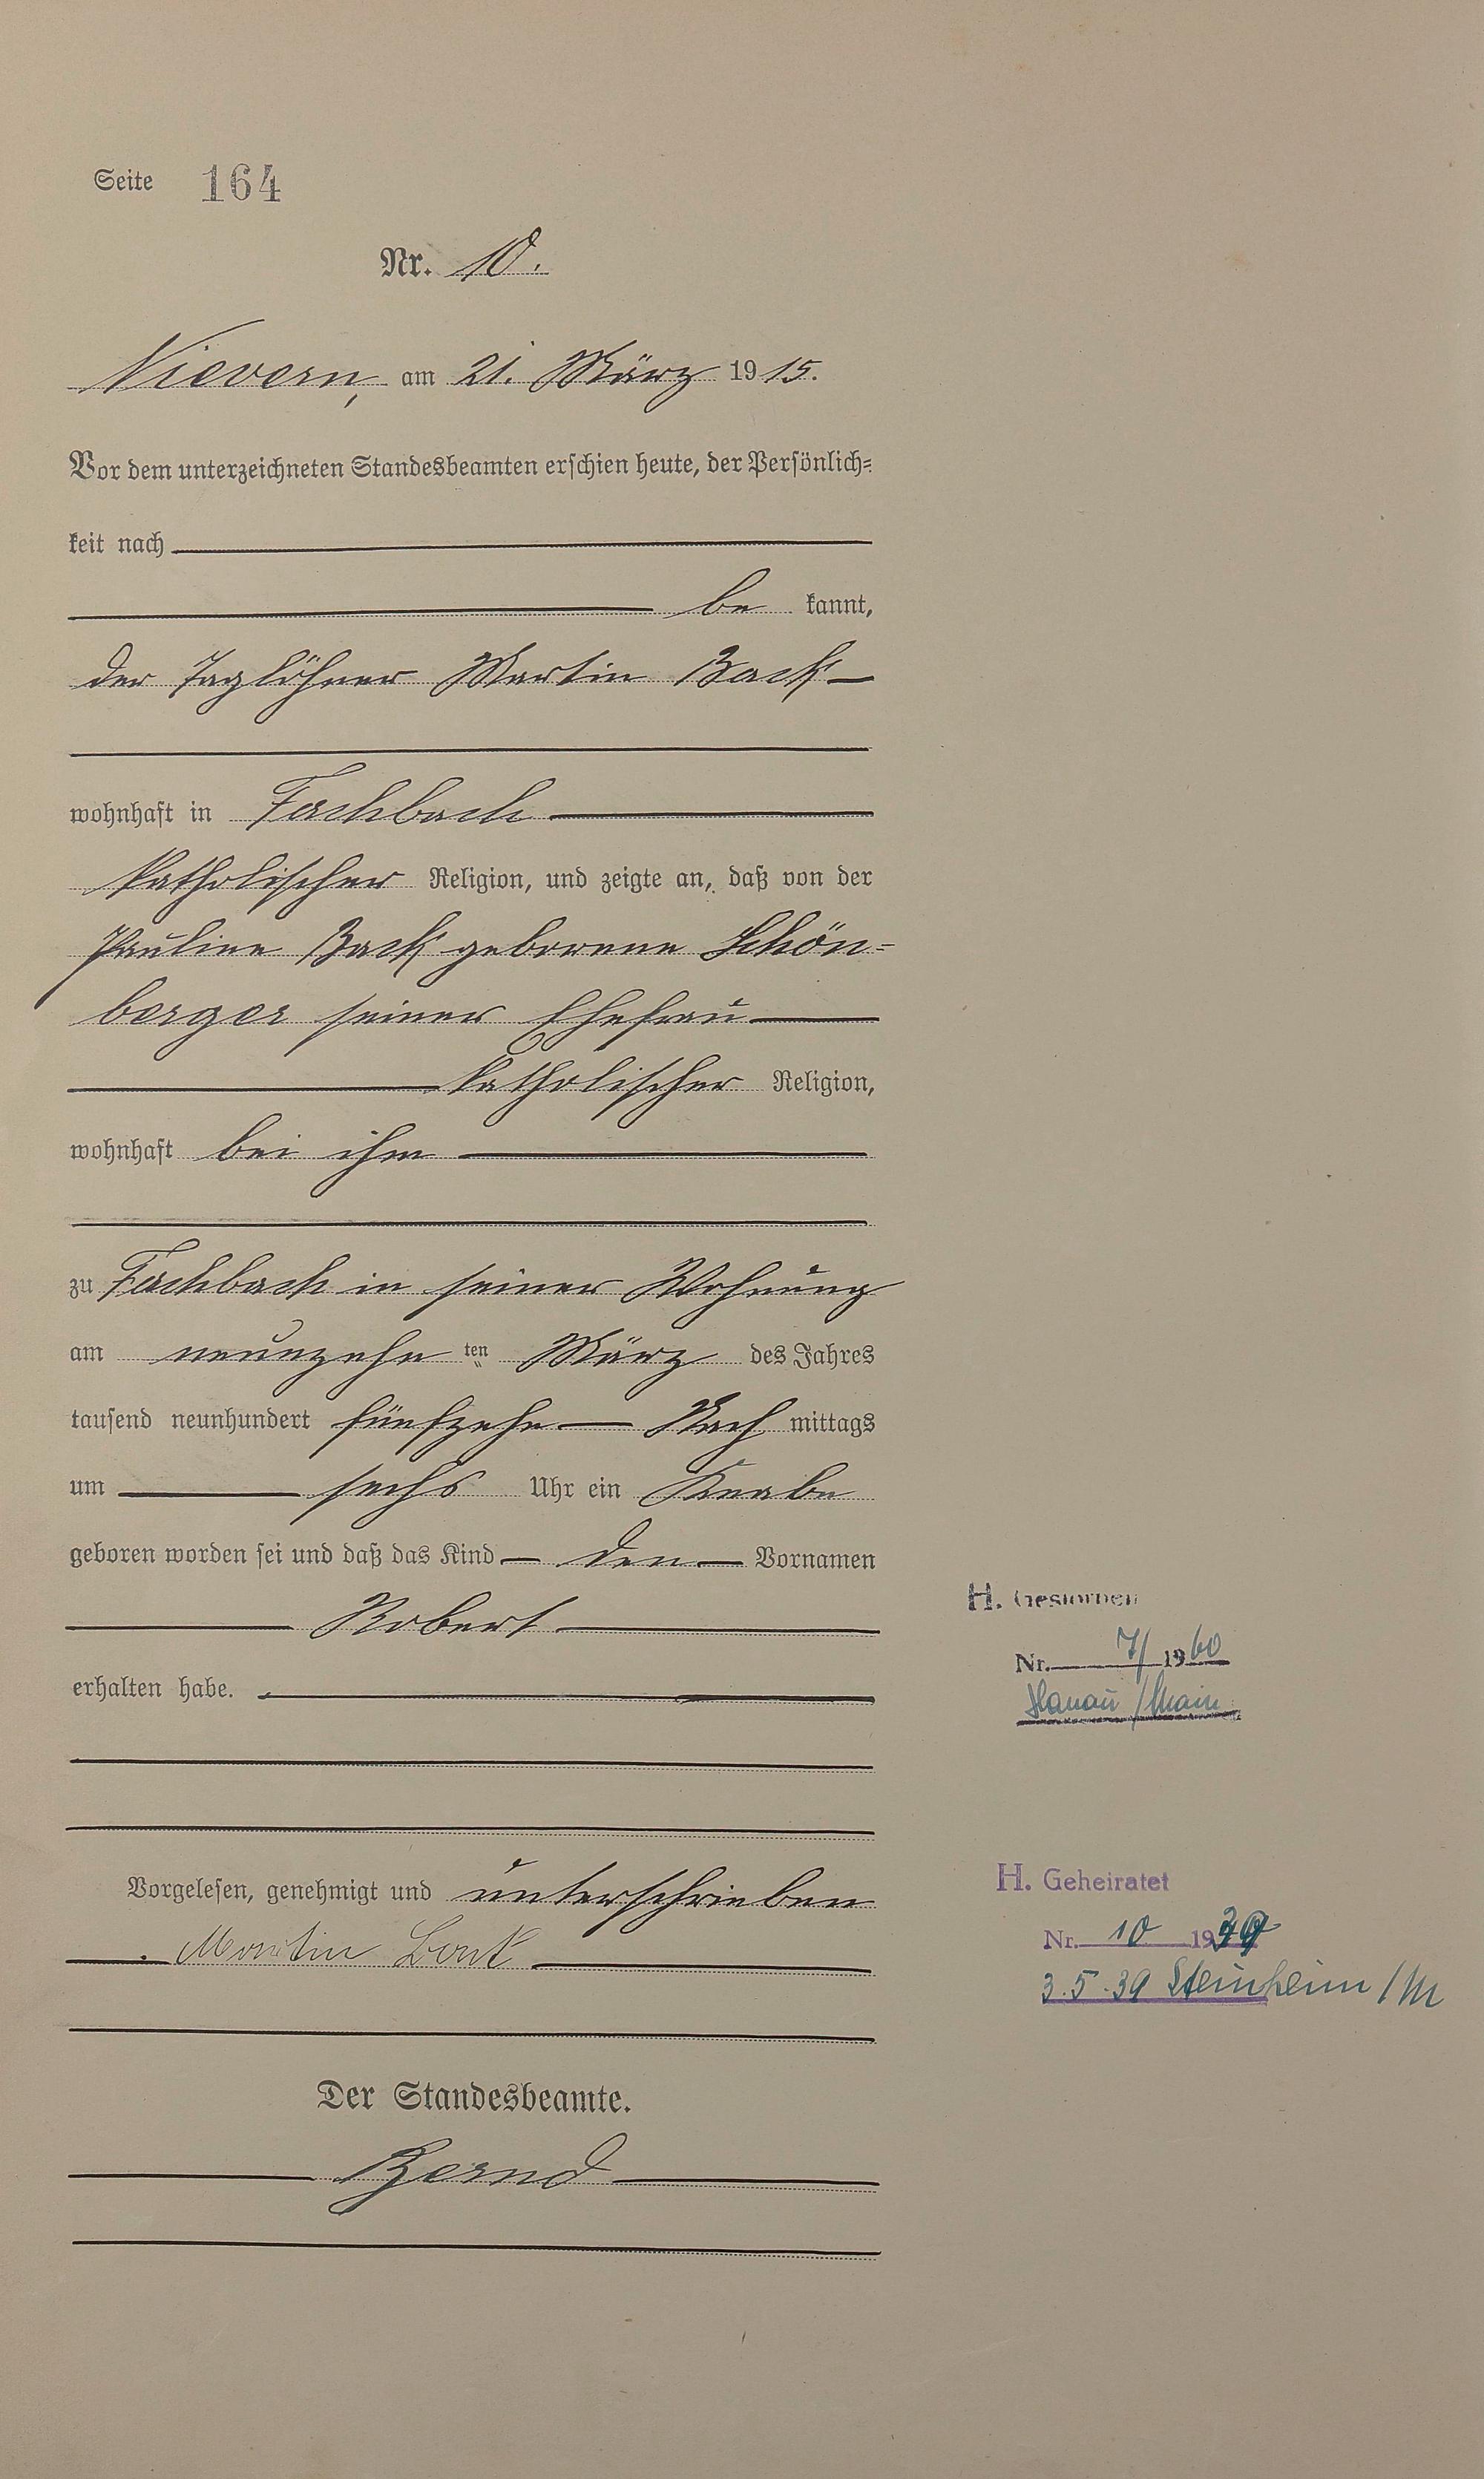 Seite 164
Nr. 10.
Nievern, am 21. März 1915.
Vor dem unterzeichneten Standesbeamten erschien heute, der Persönlich=
keit nach
be kannt,
der Taglöhner Martin Back
wohnhaft in Fachbach
katholischer Religion, und zeigte an, daß von der
Pauline Back geborene Schön=
berger seiner Ehefrau
katholischer Religion,
wohnhaft bei ihm
zu Fachbach in seiner Wohnung
am neunzehn ten März des Jahres
tausend neunhundert fünfzehn Nach mittags
um sechs Uhr ein Knabe
geboren worden sei und daß das Kind den Vornamen
Robert
erhalten habe.
Vorgelesen, genehmigt und unterschrieben
Martin Back
Der Standesbeamte.
Bernd
H. Gestorben
Nr. 7/1960
Hanau / Main
H. Geheiratet
Nr. 10 1939
3.5.39 Steinheim / M